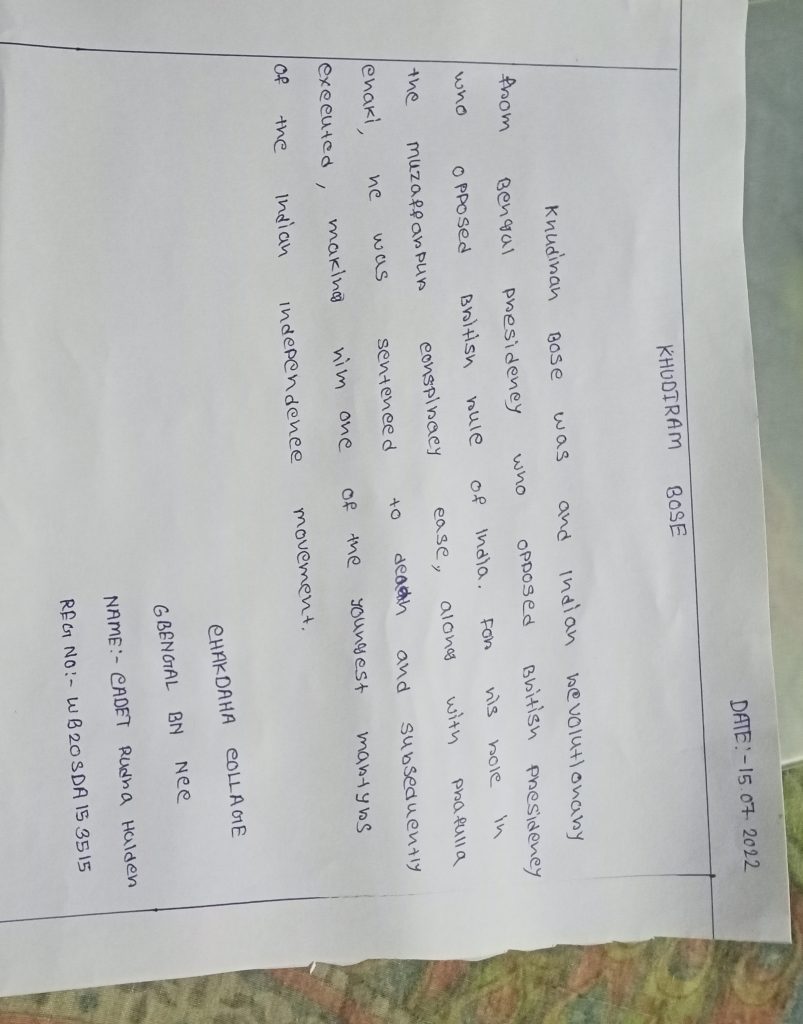 DATE:-15.07.2022
KHUDIRAM BOSE
Khudirah Bose was and Indian revolutionary
from Bengal presidency who opposed British presidency
who opposed British rule of India. For his role in
the muzaffarpur conspiracy case, along with prafulla
chaki, he was sentenced to death and subsequently
executed, making him one of the youngest martyrs
of the Indian independence movement.
CHAKDAHA COLLAGE
6BENGAL BN NCC
NAME:- CADET Rudra Halder
REG NO:- WB20SDA153515